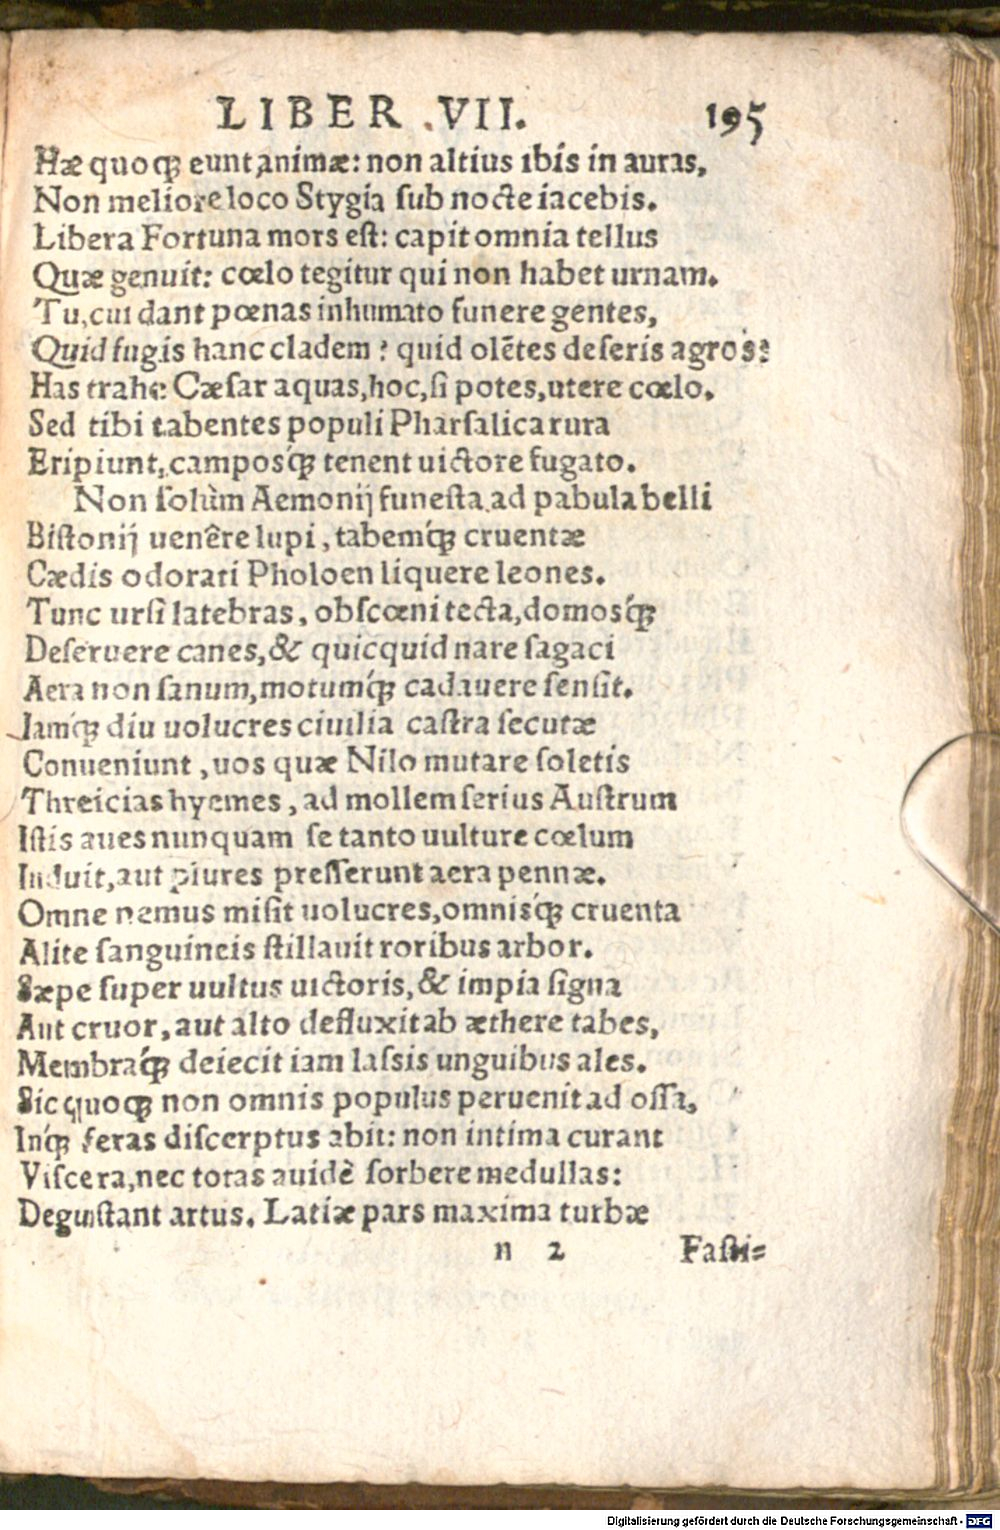 LIBER VII. 195
Hæ quoq́; eunt animæ: non altius ibis in auras,
Non meliore loco Stygia ſub nocte iacebis.
Libera Fortuna mors eſt: capit omnia tellus
Quæ genuit: cœlo tegitur qui non habet urnam.
Tu, cui dant pœnas inhumato funere gentes,
Quid fugis hanc cladem? quid olẽtes deſeris agros?
Has trahe Cæſar aquas, hoc, ſi potes, utere cœlo.
Sed tibi tabentes populi Pharſalica rura
Eripiunt, camposq́; tenent uictore fugato.
Non ſolùm Aemonij funeſta ad pabula belli
Biſtonij uenêre lupi, tabemq́; cruentæ
Cædis odorati Pholoen liquere leones.
Tunc urſi latebras, obſcœni tecta, domosq́;
Deſeruere canes, & quicquid nare ſagaci
Aera non ſanum, motumq́; cadauere ſenſit.
Iamq́; diu uolucres ciuilia caſtra ſecutæ
Conueniunt, uos quæ Nilo mutare ſoletis
Threicias hyemes, ad mollem ſerius Auſtrum
Iſtis aues nunquam ſe tanto uulture cœlum
Induit, aut plures preſſerunt aera pennæ.
Omne nemus miſit uolucres, omnisq́; cruenta
Alite ſanguineis ſtillauit roribus arbor.
Sæpe ſuper uultus uictoris, & impia ſigna
Aut cruor, aut alto defluxit ab æthere tabes,
Membraq́; deiecit iam laſsis unguibus ales.
Sic quoq; non omnis populus peruenit ad oſſa,
Inq́; feras diſcerptus abit: non intima curant
Viſcera, nec totas auidè ſorbere medullas:
Deguſtant artus. Latiæ pars maxima turbæ
n 2 Faſti=
Digitalisierung gefördert durch die Deutsche Forschungsgemeinschaft - DFG